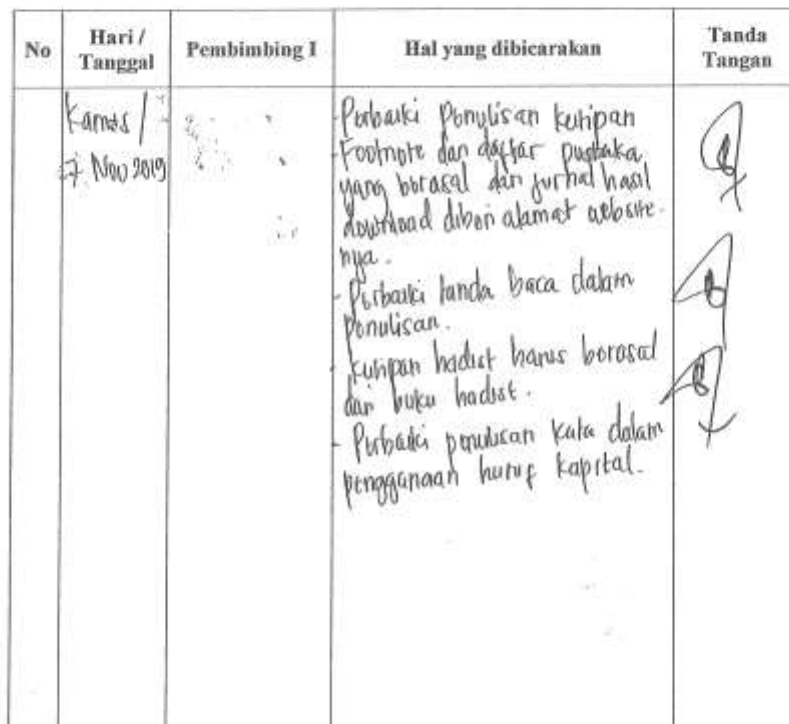 No
Hari /
Tanggal
Pembimbing I
Hal yang dibicarakan
Tanda
Tangan
Kamis /
7 Nov 2019
- Perbaiki Penulisan kutipan
Footnote dan daftar pustaka
yang berasal dari jurnal hasil
download diberi alamat website-
nya.
- Perbaiki tanda baca dalam
Penulisan.
- kutipan hadist harus berasal
dari buku hadist.
- Perbaiki penulisan kata dalam
penggunaan huruf kapital.